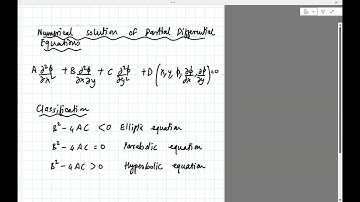 Numerical solution of Partial Differential
Equations
A ∂²φ/∂x² + B ∂²φ/∂x∂y + C ∂²φ/∂y² + D (x, y, φ, ∂φ/∂x, ∂φ/∂y) = 0
Classification
B² - 4AC < 0 Elliptic equation
B² - 4AC = 0 Parabolic equation
B² - 4AC > 0 Hyperbolic equation